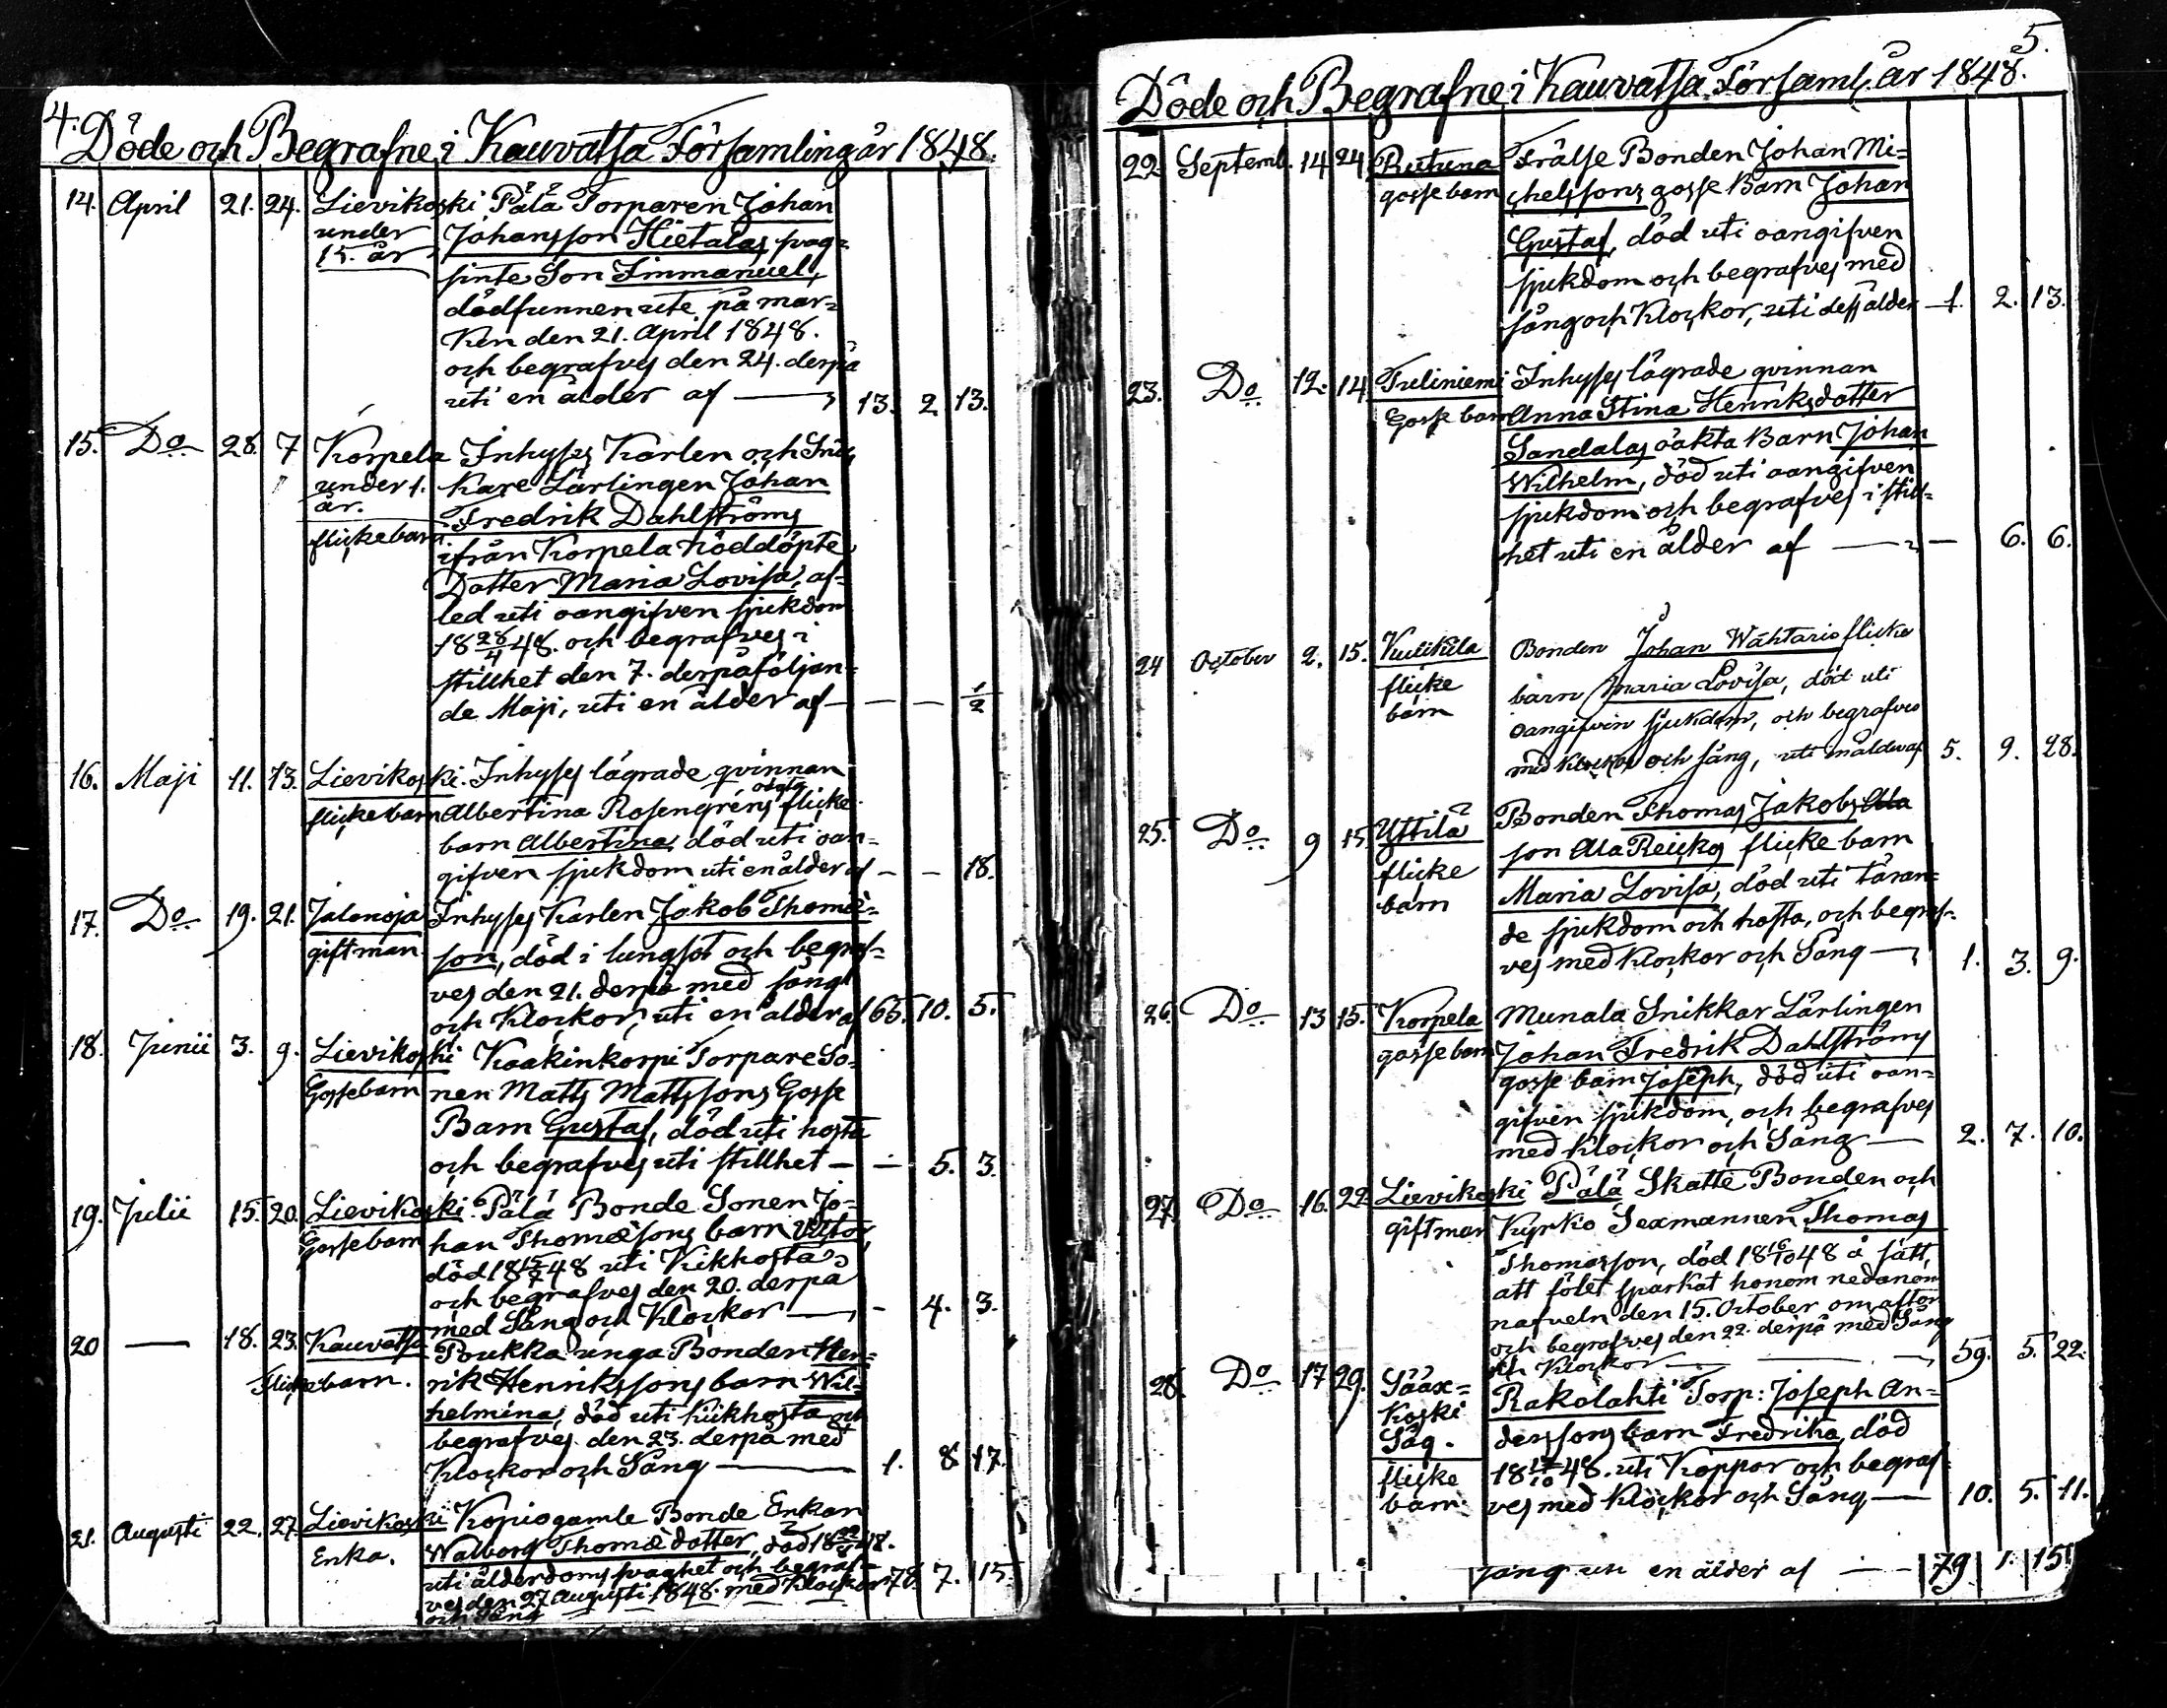 4. Döde och Begrafne i Kauvatsa Församling år 1848.
14. April 21. 24. Lievikoski Pälä Torparen Johan
under Johansson Hietalas svag=
15. år sinte Son Immanuel,
dödfunnen ute på mar=
ken den 21. April 1848.
och begrafves den 24. derpå
uti en ålder af — 13. 2. 13.
15. Do 28. 7 Korpela Inhyses Karlen och Snic
under 1. kare Lärlingen Johan
år. Fredrik Dahlströms
flickebarn. ifrån Korpela nöddöpte
Dotter Maria Lovisa, af=
led uti oangifven sjukdom
18 28/4 48. och begrafves i
stillhet den 7. derpåföljan=
de Maji, uti en ålder af — — — 1/2
16. Maji 11. 13. Lievikoski. Inhyses lägrade qvinnan
oägta
flickebarn Albertina Rosengréns flicke
barn Albertina, död uti oan=
gifven sjukdom uti en ålder af — — 18.
17. Do 19. 21. Jalonoja Inhyses Karlen Jakob Thomæ=
gift man son, död i lungsot och begraf=
ves den 21. derpå med sång
och Klockor, uti en ålder af 65. 10. 5.
18. Junii 3. 9. Lievikoski Kaakinkorpi Torpare So=
Gossebarn nen Matts Mattssons Gosse
Barn Gustaf, död uti hosta
och begrafves uti stillhet — — 5. 3.
19. Julii 15. 20. Lievikoski. Pälä Bonde Sonen Jo=
Gossebarn han Thomæsons barn Victor,
död 18 15/7 48 uti Kikhosta
och begrafves den 20. derpå
med Sång och Klockor — - 4. 3.
20 — 18. 23. Kauvatsa Poukka unga Bonden Hen=
Flickebarn. rik Henrikssons barn Wil=
helmina, död uti kikhosta och
begrafves den 23. derpå med
Klockor och Sång — 1. 8 17.
21. Augusti 22. 27. Lievikoski Kopio gamle Bonde Enkan
Enka. Walborg Thomædotter, död 18 22/8 48.
uti ålderdoms svaghet och begraf=
ves den 27 Augusti 1848. med Klockor 78. 7. 15.
och Sång
5.
Döde och Begrafne i Kauvatsa Församl. år 1848.
22. Septemb. 14 24 Ruutuna Frälse Bonden Johan Mi=
gosse barn chelssons gosse Barn Johan
Gustaf, död uti oangifven
sjukdom och begrafves med
sång och Klockor, uti dess ålder — 1. 2. 13.
23. Do 12. 14 Tuliniemi Inhyses lägrade qvinnan
Gosse barn Anna Stina Henriksdotter
Sandalas oäkta Barn Johan
Wilhelm, död uti oangifven
sjukdom och begrafves i still=
het uti en ålder af — — 6. 6.
24 October 2. 15. Kuulikila Bonden Johan Wähtaris flicke
flicke barn Maria Lovisa, död uti
barn oangifven sjukdom, och begrafves
med klockor och sång, uti en ålder af 5. 9. 28.
25. Do 9 15 Yttilä Bonden Thomas Jakobs Ala
flicke son Ala Reickos flicke barn
barn Maria Lovisa, död uti täran=
de sjukdom och hosta, och begraf=
ves med Klockor och Sång — 1. 3. 9.
26. Do 13 15. Korpela Munala Snikkar Lärlingen
gosse barn Johan Fredrik Dahlströms
gosse barn Joseph, död uti oan=
gifven sjukdom, och begrafves
med klockor och Sång — 2. 7. 10.
27. Do 16. 22. Lievikoski Pälä Skatte Bonden och
gift man Kyrko Sexmannen Thomas
Thomasson, död 18 16/10 48 å sätt,
att fölet sparkat honom nedanom
nafveln den 15. October om afton
och begrafves den 22. derpå med Sång
och Klockor — 59. 5. 22.
28. Do 17 29. Sääx= Rakolahti Torp: Joseph An=
koski derssons barn Fredrika, död
Såg. 18 17/10 48. uti Koppor och begraf=
flicke ves med Klockor och Sång — 10. 5. 11.
barn.
sång uti en ålder af — — 79 1. 15